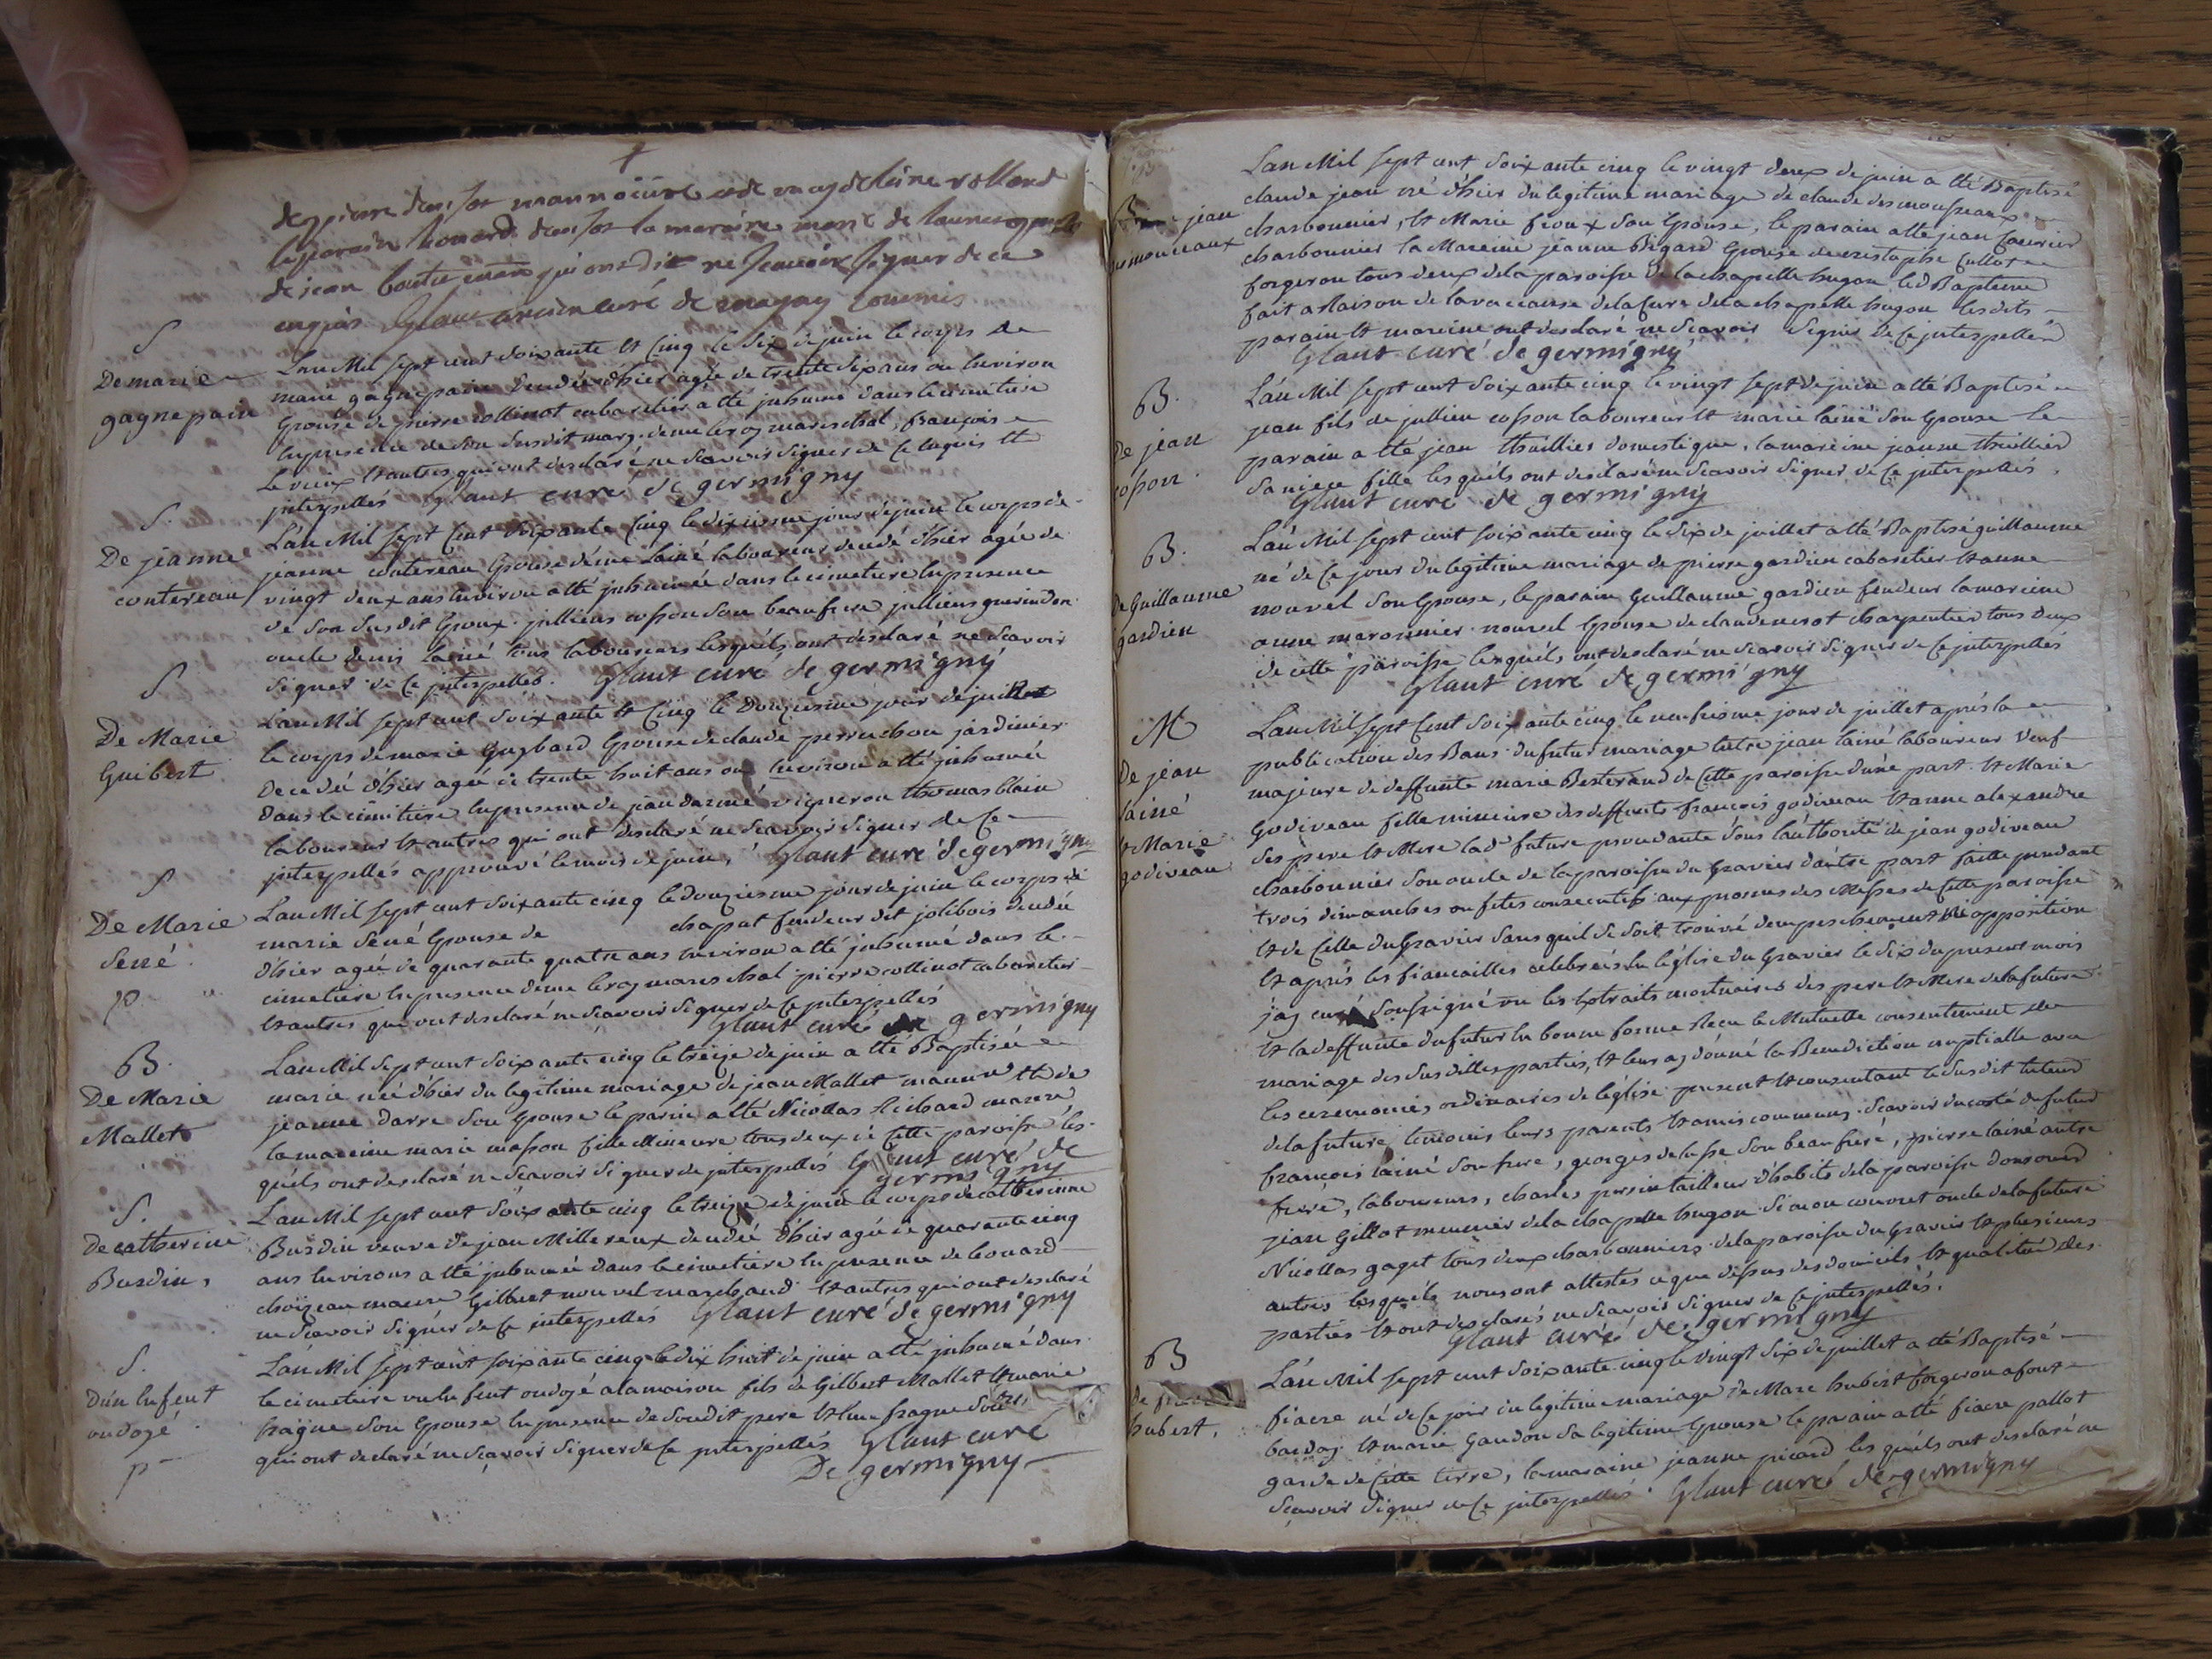 de pierre
le parain Leonard la maraine marie de launes
de jean qui ont dit ne scauoir signer de ce
enquis Glaut ancien curé de commis
S
De marie
gagnepain
Lan Mil sept cent soixante et cinq le six de juin le corps de
marie gagnepain decedée d'hier agée de trente six ans ou Environ
Epouse de pierre collinot cabaretier a été inhumé dans le cimetiere
En presence de son susdit mary. marechal, François
Le vieux et autres qui ont desclaré ne scavoir signer de ce enquis et
interpellés Glaut curé de germigny
S.
De jeanne
contereau
L'an Mil sept Cent soixante Cinq le dixiesme jour de juin le corps de
jeanne contereau Epouse d'eme Lainé laboureur decedé d'hier agée de
vingt deux ans Environ a été inhumée dans le cimetiere En presence
de son susdit Epoux. julliens cosson son beau frere julliens guerin son
oncle denis lainé tous laboureurs lesquels ont desclaré ne scavoir
signer de Ce interpellés. Glaut curé de germigny
S
De Marie
Guibert
Lan Mil sept cent soixante et Cinq le douziesme jour de juillet
le corps de marie Guybard Epouse de claude perruchon jardinier
decedé d'hier agée de trente huit ans ou Environ a été inhumée
dans le cimitiere En presence de jean darmé vigneron thomas blain
laboureur et autres qui ont desclaré ne scavoir signer de Ce
interpellés approuvé le mois de juin, Glaut curé de germigny
S
De Marie
Sené.
p
Lan Mil sept cent soixante cinq le douziesme jour de juin le corps de
marie Sené Epouse de chaput fendeur dit jolibois decedée
d'hier agée de quarante quatre ans Environ a été inhumé dans le
cimetiere En presence d'eme leroy mareschal pierre collinot cabaretier
et autres qui ont desclaré ne scavoir signer de Ce interpellés
Glaut curé de germigny
B.
De Marie
Mallet
Lan Mil sept cent soixante cinq le treize de juin a été Baptisée
marie née d'hier du legitime mariage de jean Mallet manœuvre et de
jeanne Darre son Epouse le parain a été Nicollas Richard
la maraine marie masson fille Mineure tous deux de Cette paroisse les
quels ont desclaré ne scavoir signer de interpellés Glaut curé de
germigny
S.
De catherine
Burdin,
Lan Mil sept cent soixante cinq le treize de juin le corps de catherinne
Burdin veuve de jean Millereux decedée d'hier agée de quarante cinq
ans Environs a été inhumée dans le cimetiere En presence de Leonard
choizeau Gilbert nouvel marchand et autres qui ont desclaré
ne scavoir signer de Ce interpellés Glaut curé de germigny
S.
D'un Enfent
ondoyé.
p
L'an Mil sept cent soixante cinq le dix huit de juin a été inhumé dans
le cimetiere un Enfent ondoyé a la maison fils de Gilbert Mallet et marie
fragne son Epouse En presence de soudit pere et fragne
qui ont declaré ne scavoir signer de Ce interpellés Glaut curé
De germigny
B
jean
Lan Mil sept cent soixante cinq le vingt deux de juin a été Baptisé
claude jean né d'hier du legitime mariage de claude desmousseaux
charbonnier, et Marie feoux son Epouse, le parain a été jean
charbonnier la Mareine jeanne Bigard Epouse de cristophe
forgeron tous deux de la paroisse de la chapelle hugon led Bapteme
fait a Raison de la vaccance de la Cure de la chapelle hugon lesdits
parain et mareine ont desclaré ne scavoir signer de Ce interpellés
Glaut curé de germigny
B.
De jean
cosson.
L'an Mil sept cent soixante cinq le vingt sept de juin a été Baptisé
jean fils de jullien cosson laboureur et marie lainé son Epouse le
parain a été jean thuillier domestique, la mareine jeanne thuillier
sa niece fille lesquels ont desclaré ne scavoir signer de Ce interpellés.
Glaut curé de germigny
B.
De Guillaume
gardien
Lan Mil sept cent soixante cinq le six de juillet a été Baptisé guillaume
né de Ce jour du legitime mariage de pierre gardien cabaretier et anne
nouvel son Epouse, le parain Guillaume gardien fendeur la mareine
anne maronnier nouvel Epouse de claude charpentier tous deux
de cette paroisse lesquels ont desclaré ne scavoir signer de Ce interpellés
Glaut curé de germigny
M
De jean
lainé
et Marie
godiveau
L'an Mil sept Cent soixante cinq le jour de juillet après la
publication des Bans du futur mariage Entre jean lainé laboureur veuf
majeure de deffunte marie Besterand de Cette paroisse d'une part. et Marie
Godiveau fille mineure des deffunts francois godiveau et anne alexandre
ses pere et Mere lad future procedante sous l'authorité de jean godiveau
charbonnier son oncle de la paroisse du Gravier d'autre part faitte pendant
trois dimanches ou fetes consecutifs aux prosnes des Messes de Cette paroisse
et de Celle du Gravier sans quil se soit trouvé d'empeschement ni opposition
et après les fiançailles celebrées En l'église du Gravier le dix du present mois
j'ay curé soussigné vu les Extraits mortuaires des pere et Mere de la future
et la deffunte du futur En bonne forme Recu le Mutuelle consentement de
mariage des susdittes parties, et leur ay donné la Benediction nuptialle avec
les ceremonies ordinaires de leglise present et consentant le susdit tuteur
de la future, temoins leurs parents et amis communs. scavoir du costé du futur
françois lainé son frere, georges son beau freré, pierre lainé autre
freré, laboureurs, charles persin tailleur d'habits de la paroisse
jean Gillot meunier de la chapelle hugon. Simon couvret oncle de la future
Nicollas gaget tous deux charbonniers de la paroisse du Gravier et plusieurs
autres lesquels nous ont attestés ce que dessus des domicils et qualités des
parties et ont desclarés ne scavoir signer de Ce interpellés.
Glaut curé de germigny
B
De
hubert,
L'an Mil sept cent soixante cinq le vingt six de juillet a été Baptisé
fiacre né de Ce jour du legitime mariage de Marc hubert forgeron a font
barday. et marie Gaudon sa legitime Epouse le parain a été fiacre pallot
garde de Cette terre, la maraine jeanne picard lesquels ont desclaré ne
scavoir signer de Ce interpellés. Glaut curé de germigny